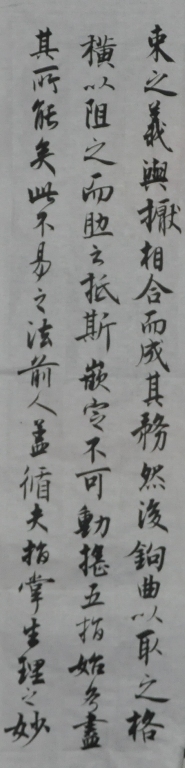 束之義與擫相合而成其務然後鉤曲以取之格
橫以阻之而肋云抵斯嵌定不可動搖五指始各盡
其所能矣此不易之法前人盖循夫指掌生理之妙